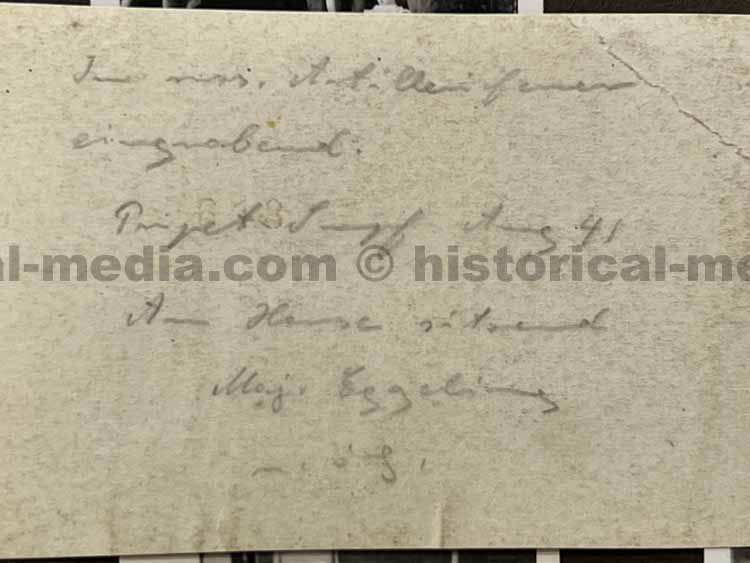 Im russ. Artilleriefeuer
eingrabend.
Pripet-Sumpf Aug 41
al-media.com © historical-me
Am Hause sitzend
Maj. Eggeling